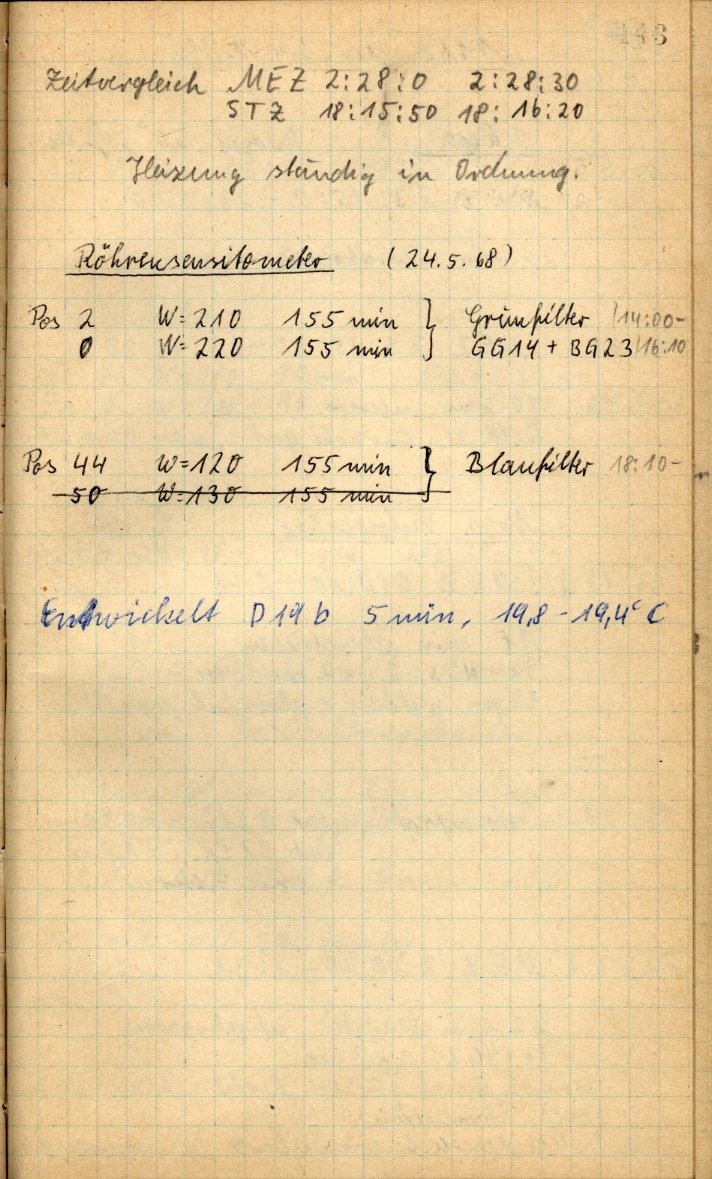 143
Zeitvergleich MEZ 2:28:0 2:28:30
STZ 18:15:50 18:16:20
Heizung ständig in Ordnung.
Röhrensensitometer (24.5.68)
Pos 2 W=210 155 min } Grünfilter /14:00-
0 W=220 155 min } GG14 + BG23 /16:10
Pos 44 W=120 155 min } Blaufilter 18:10-
50 W=130 155 min
Entwickelt D19b 5 min, 19,8-19,4° C